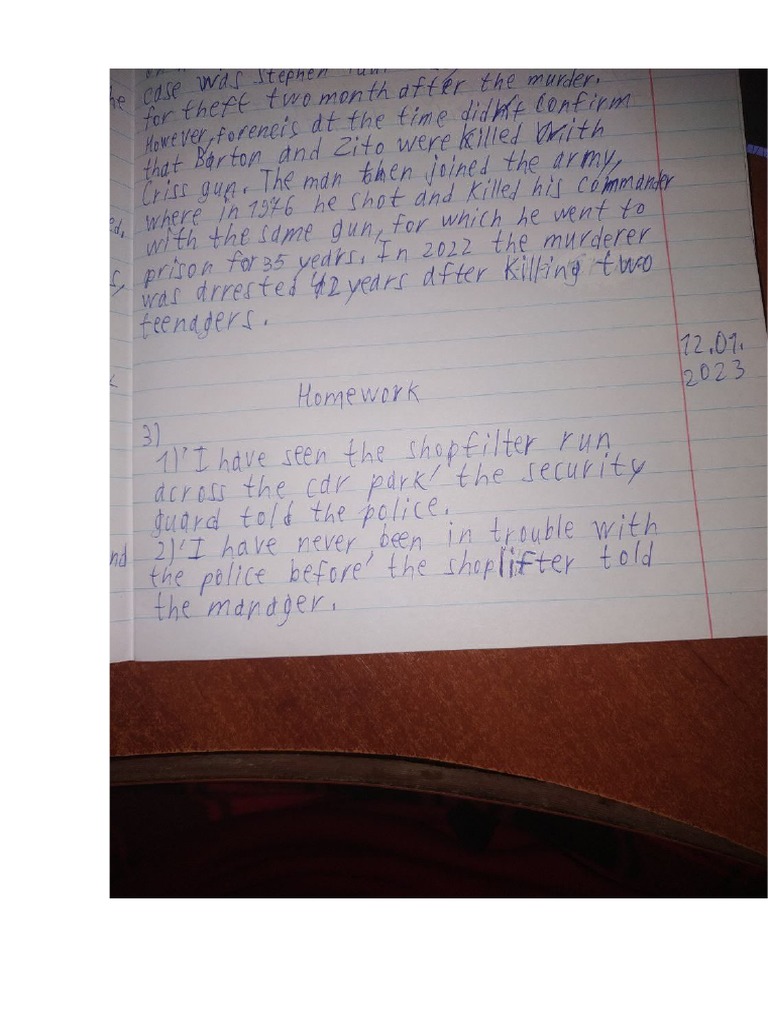 case was Stephen
for theft two month after the murder.
However, foreneis at the time didn't confirm
that Barton and Zito were killed with
Criss gun. The man then joined the army,
where in 1976 he shot and killed his commander
with the same gun, for which he went to
prison for 35 years. In 2022 the murderer
was arrested 42 years after killing two
teenagers.
12.01.
2023
Homework
3)
1)'I have seen the shopfilter run
across the car park' the security
guard told the police.
2)'I have never been in trouble with
the police before' the shoplifter told
the manager.